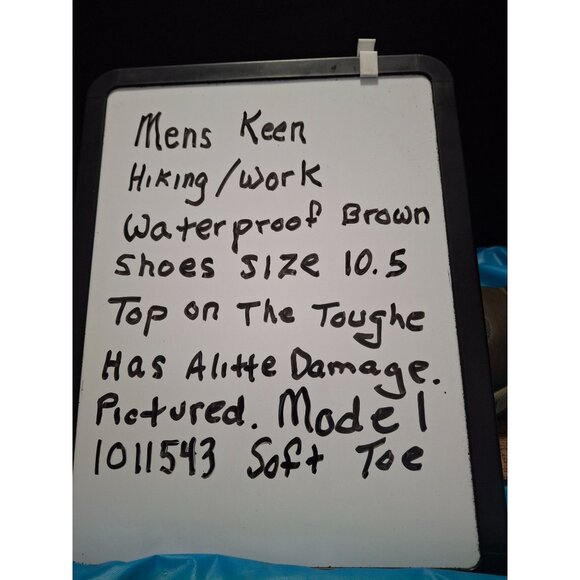 Mens Keen
Hiking/Work
Waterproof Brown
Shoes Size 10.5
Top on The Toughe
Has Alitte Damage.
Pictured. Model
1011543 Soft Toe